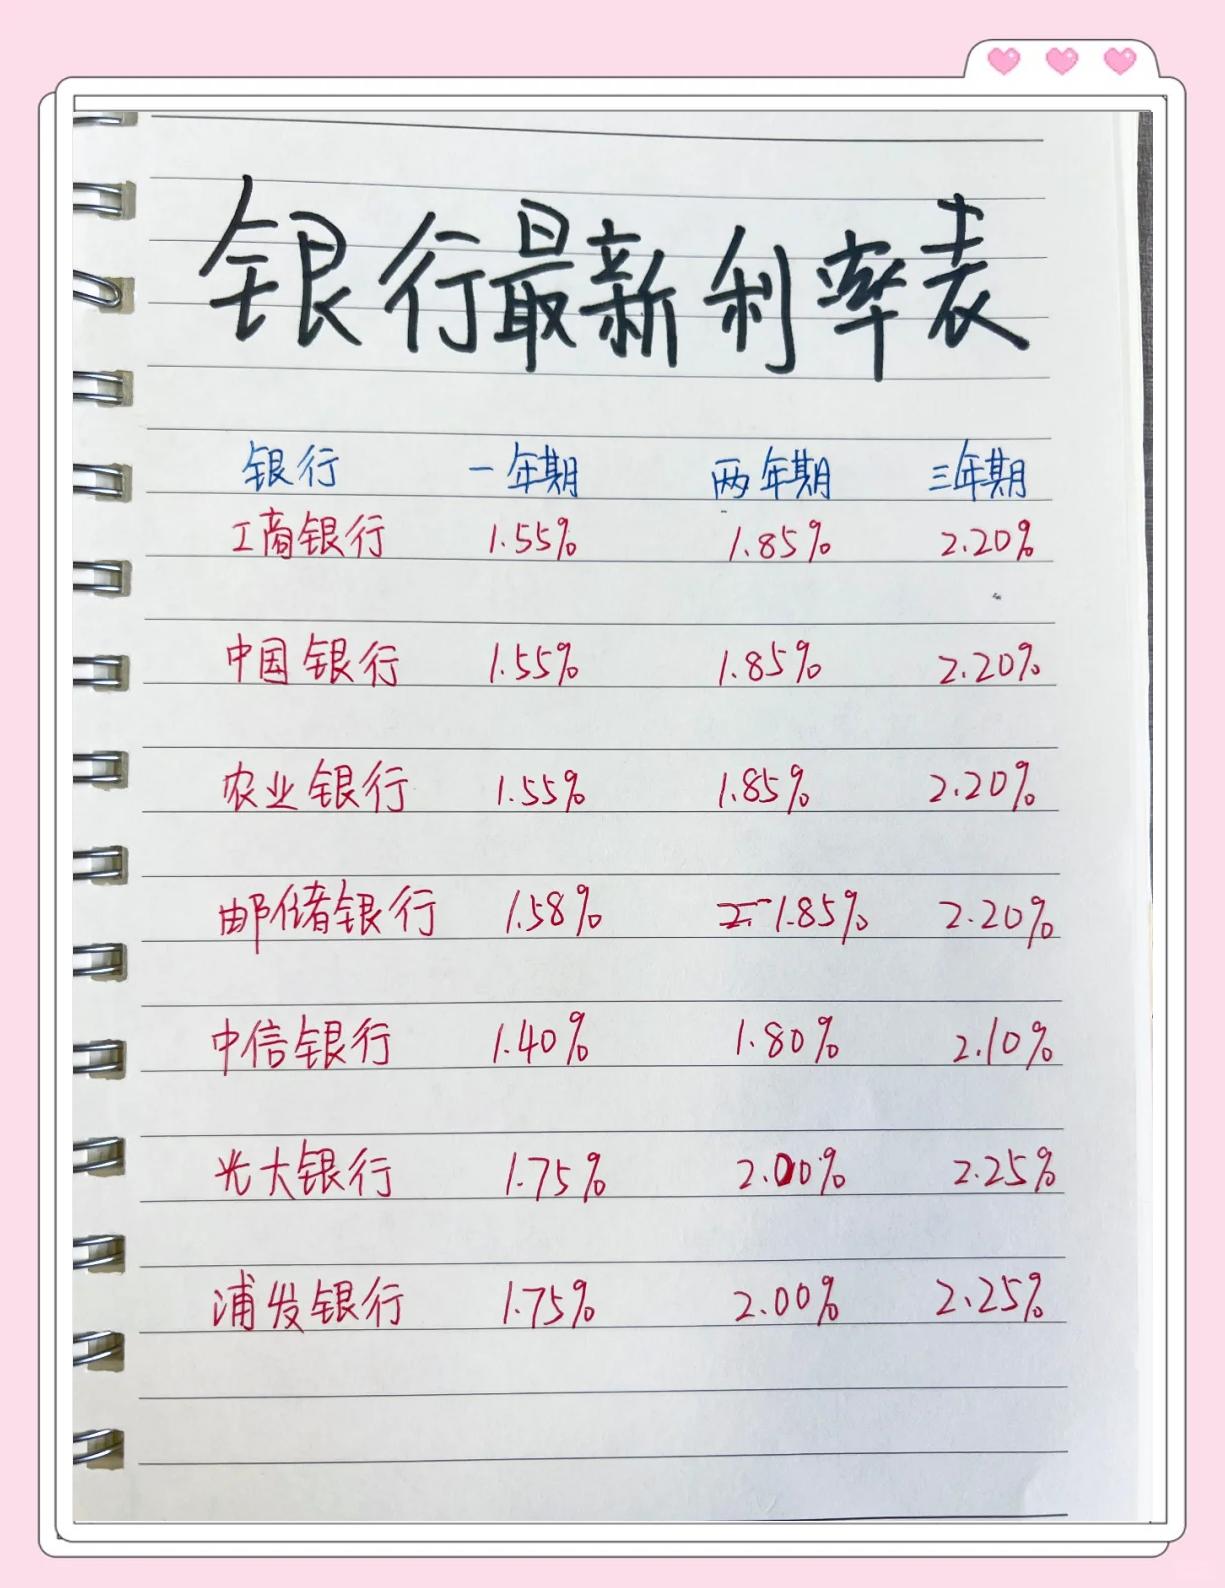 银行最新利率表
银行 一年期 两年期 三年期
工商银行 1.55% 1.85% 2.20%
中国银行 1.55% 1.85% 2.20%
农业银行 1.55% 1.85% 2.20%
邮储银行 1.58% 1.85% 2.20%
中信银行 1.40% 1.80% 2.10%
光大银行 1.75% 2.00% 2.25%
浦发银行 1.75% 2.00% 2.25%